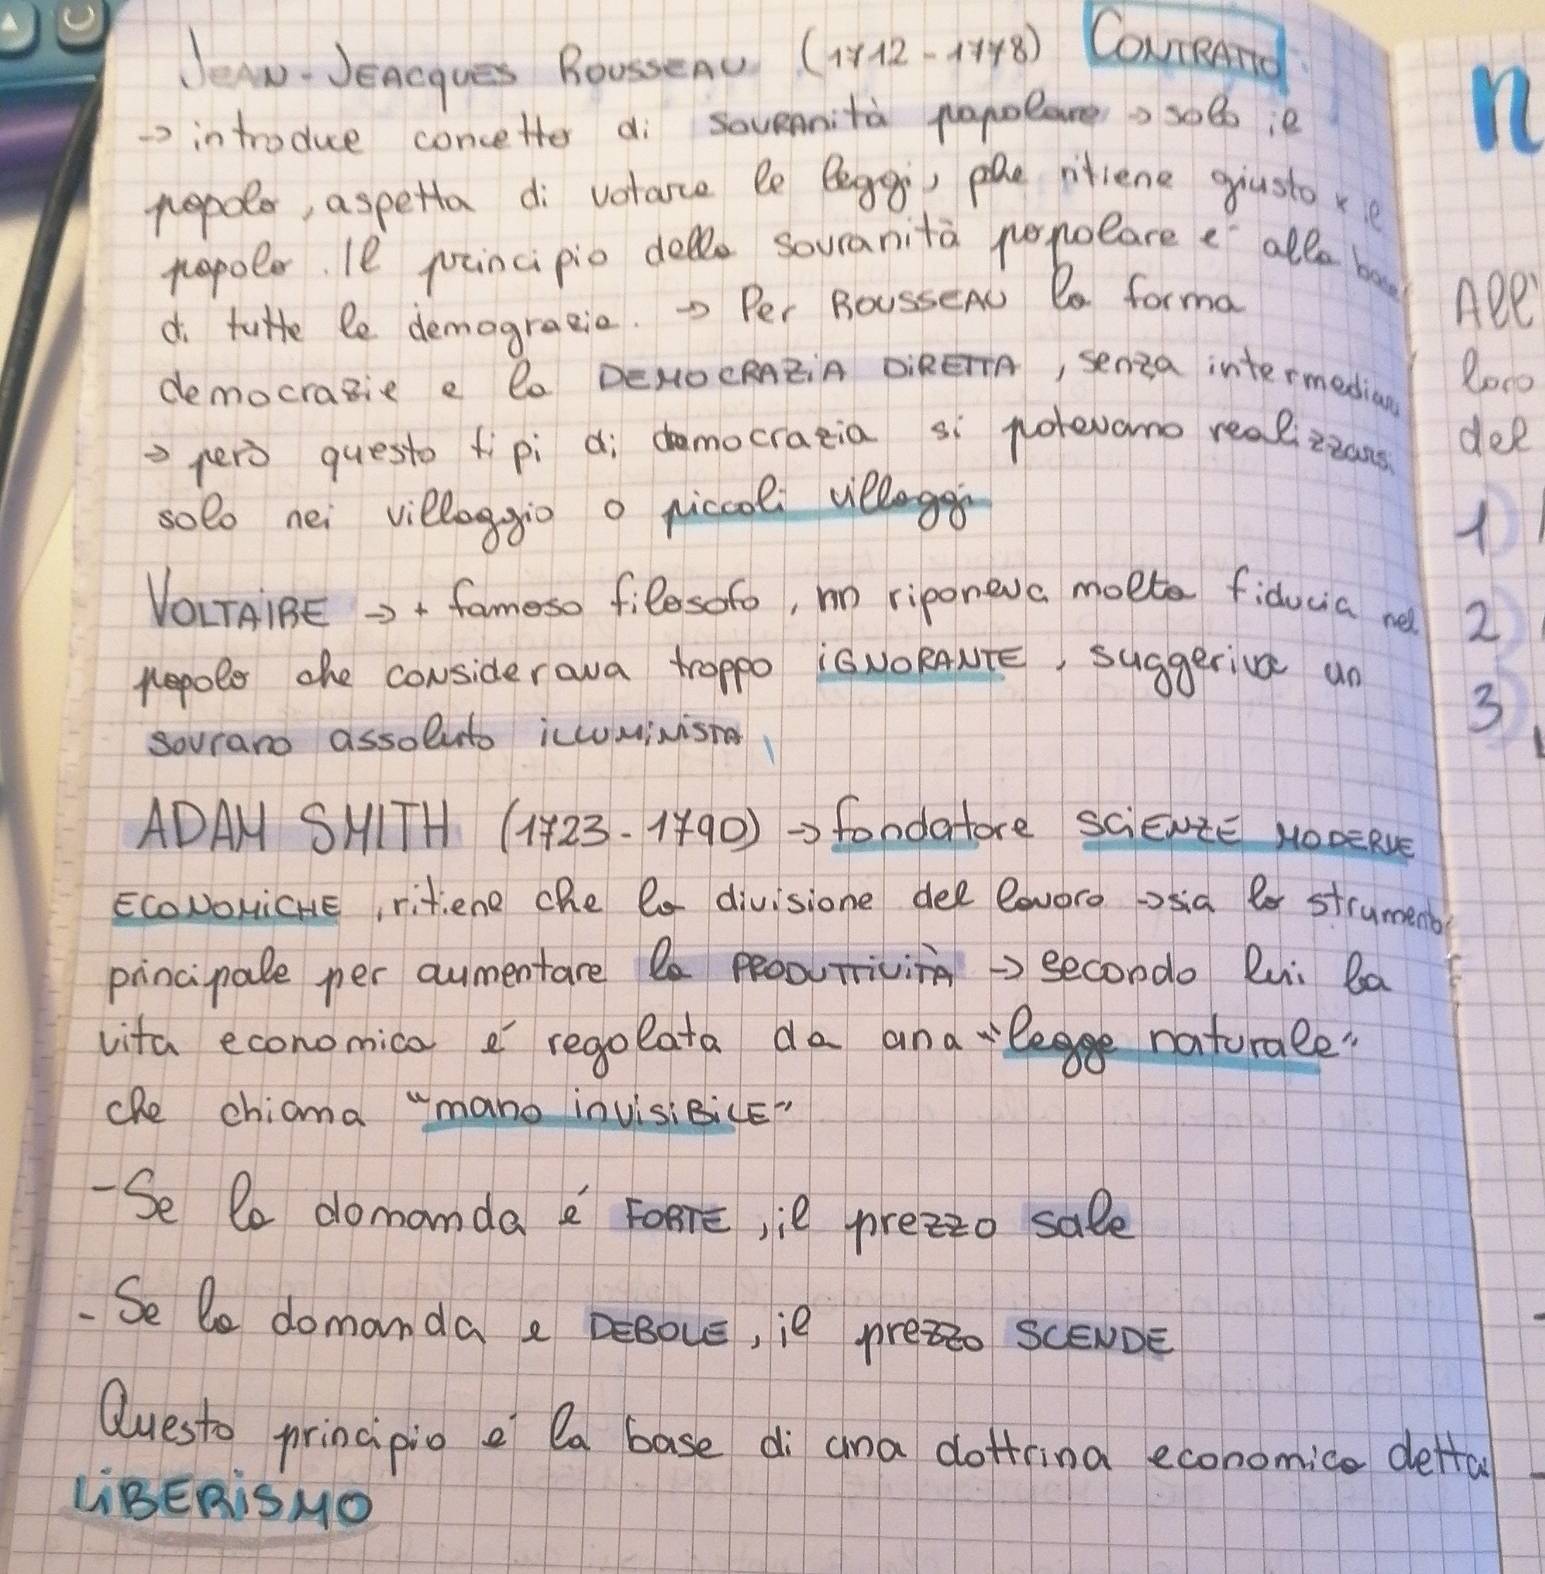 JEAN-JEACQUES ROUSSEAU (1712-1778) CONTRATTO
→ introduce concetto di SOVRANITÀ popolare → solo il
popolo, aspetta di votare le leggi, che ritiene giusto x il
popolo. Il principio della sovranità popolare e' alla base
di tutte le demograzie. → Per ROUSSEAU la forma
democrazie e la DEMOCRAZIA DIRETTA, senza intermediari
→ però questo tipi di democrazia si potevano realizzarsi
solo nei villaggio o piccoli villaggi
VOLTAIRE → + famoso filosofo, nn riponeva molta fiducia nel
popolo che considerava troppo IGNORANTE, suggeriva un
sovrano assoluto ILLUMINISTA
ADAM SMITH (1723-1790) → fondatore SCIENZE MODERNE
ECONOMICHE, ritiene che la divisione del lavoro → sia lo strumento
principale per aumentare la PRODUTTIVITÀ → secondo lui la
vita economica é regolata da una "legge naturale"
che chiama "mano invisiBiLE"
- Se la domanda é FORTE, il prezzo sale
- Se la domanda e DEBOLE, il prezzo SCENDE
Questo principio e' la base di una dottrina economica detta
LIBERISMO
n
All'
loro
del
1
2
3